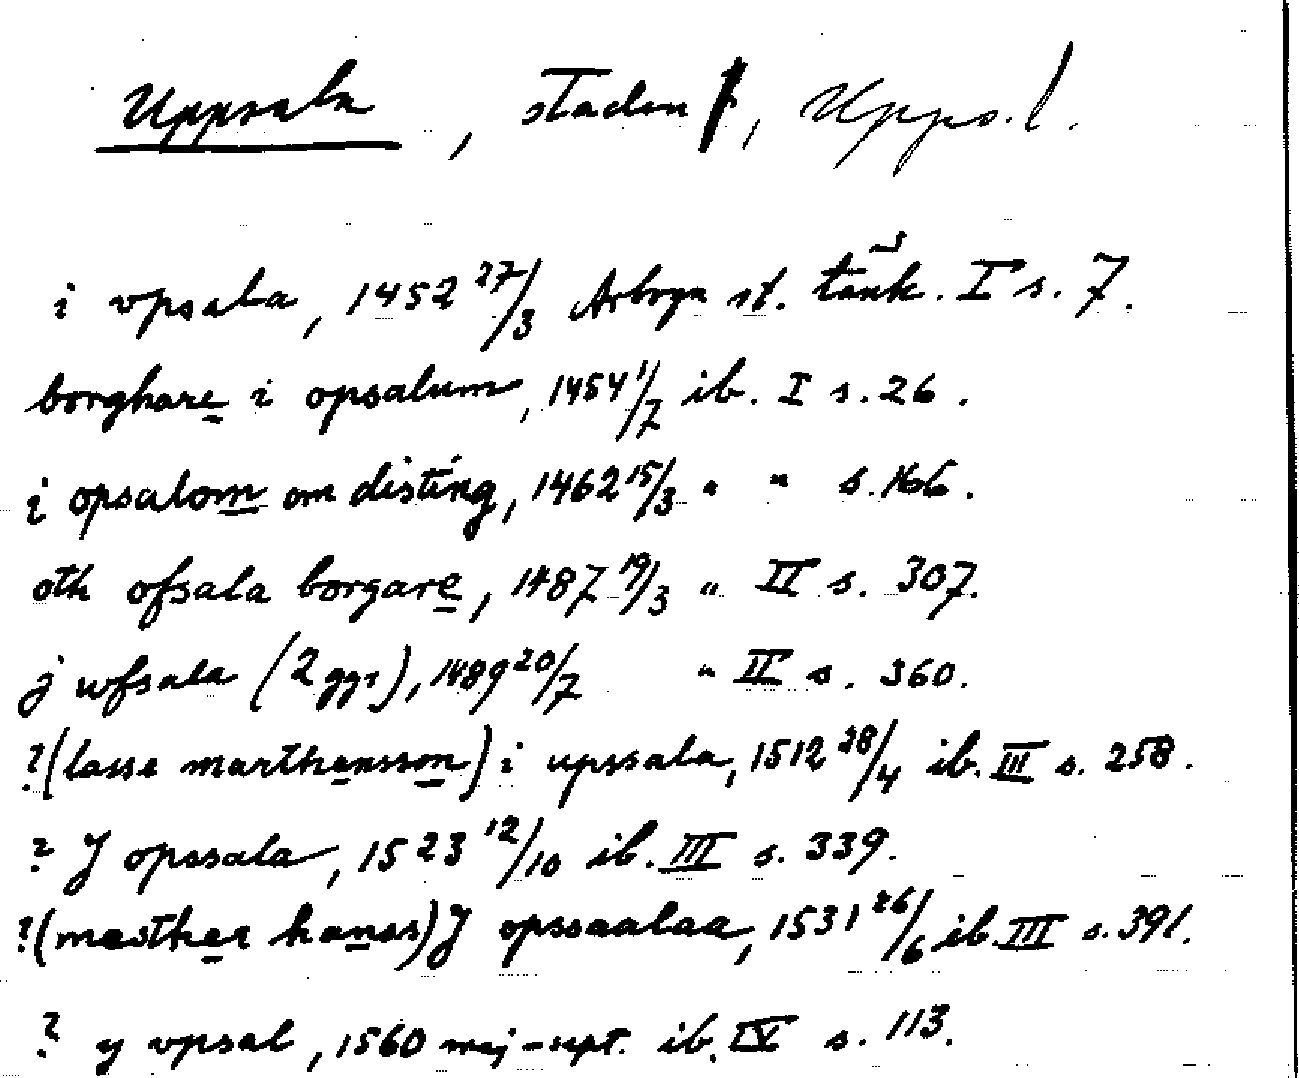 Uppsala, staden, Upps. l.
i vpsala, 1452 27/3 Arboga st. tänk. I s. 7.
borghare i opsalum, 1454 1/7 ib. I s. 26.
i opsalom om disting, 1462 15/3 " " s. 166.
oth ofsala borgare, 1487 19/3 " II s. 307.
j wfsala (2 ggr), 1489 20/7 " II s. 360.
?(lasse marthensson) i upssala, 1512 28/4 ib. III s. 258.
? J opssala, 1523 12/10 ib. III s. 339.
?(mesther hanss) J opssaalaa, 1531 26/6 ib. III s. 391.
? y vpsal, 1560 maj-sept. ib. IV s. 113.